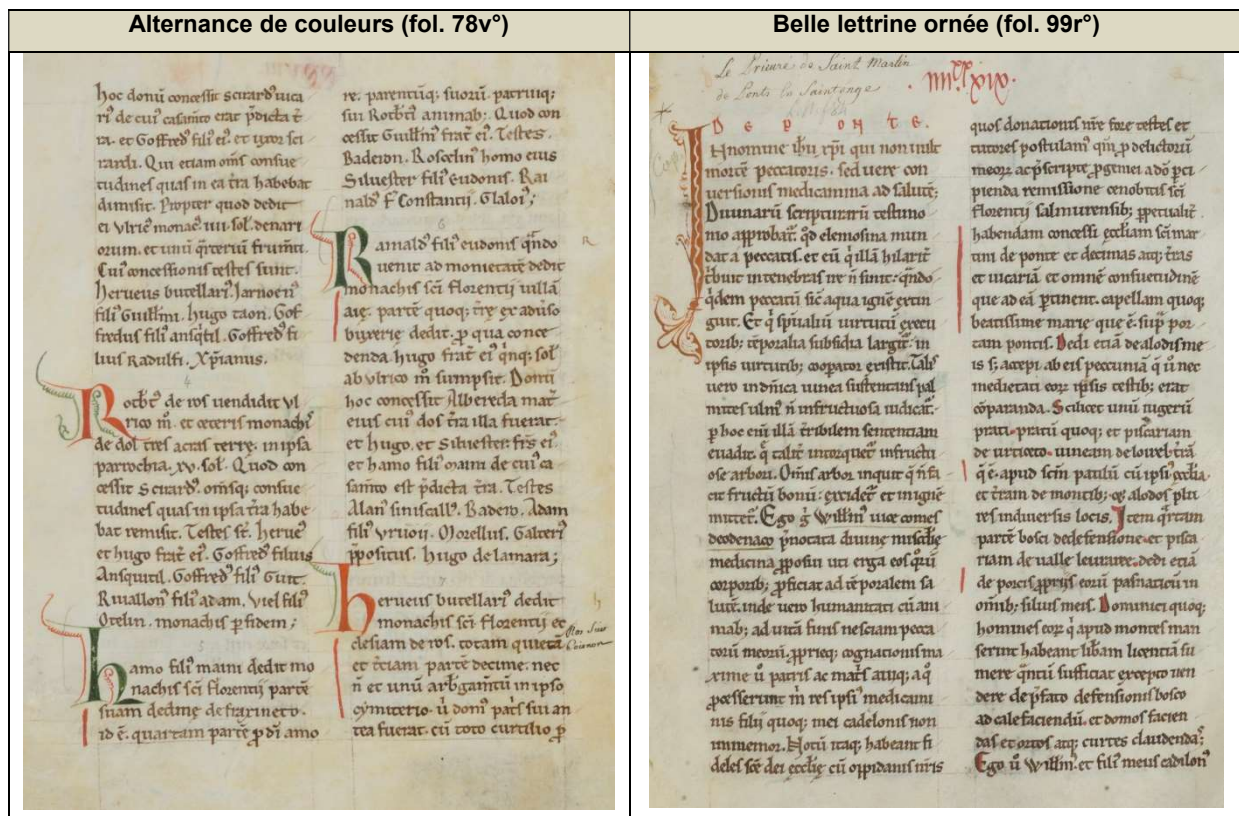 Alternance de couleurs (fol. 78v°)
hoc donū concessit Scuard' uica
ri' de cui' casam̄to erat p̄dicta t̄
ra. et Goffred' fili' ei'. et igor sci
rardi. Qui etiam om̄s consue
tudines quas in ea t̄ra habebat
dimisit. Propter quod dedit
ei Vlric' monac' iiii. sol. denari
orum. et unū q̄rteriū frum̄ti.
Cui' concessionis testes sunt.
herueus butellari'. Jarnoen'
fili' Guillmi. hugo taon. Gof
fredus fili' ansq̄til. Goffred' fi
lius Radulfi. Xp̄ianus.
4
Rotb̄t' de ros uendidit Vl
rico m̄. et ceteris monachi'
de dol tres acras terre. in ipsa
parrochia. xv. sol. Quod con
cessit Scuard'. om̄sq; consue
tudines quas in ipsa t̄ra habe
bat remisit. Testes st̄. herue'
et hugo frat̄ ei'. Goffred' filius
Ansquitil. Goffred' fili' Guit.
Riuallon' fili' adam. Viel fili'
Otelin. monachis p fidem;
5
hamo fili' maini dedit mo
nachis sc̄i florentij partē
suam decimę de fraxineto.
id ē. quartam partē p di' amo
re. parentūq; suorū patruiq;
sui Rotb̄ti animab;. Quod con
cessit Guillm' frat̄ ei'. Testes.
Baderon. Roscelin' homo eius
Siluester fili' eudonis. Rai
nald' f' Constantij. Glaloi';
6
Rainald' fili' eudonis q̄ndo
uenit ad monietatē dedit
monachis sc̄i florentij uillā
aię. partē quoq; t̄rę ex aduso
buxerię dedit. p qua conce
denda hugo frat̄ ei' q̄nq; sol'
ab Vlrico m̄ sumpsit. Donū
hoc concessit Albereda mat̄
eius cui' dos t̄ra illa fuerat.
et hugo. et Siluester. fr̄s ei'
et hamo fili' maini de cui' ca
sam̄to est p̄dicta t̄ra. Testes
Alan' siniscall'. Badero. Adam
fili' Vruoij. Morellus. Galteri'
p̄positus. hugo delamara;
7
herueus butellari' dedit
monachis sc̄i florentij ec
clesiam de ros. totam quietā
et t̄ciam partē decime. nec
n̄ et unū arb̄gam̄tū in ipso
cymiterio. ū dom' patis sui an
tea fuerat. cū toto curtilio p
R
h
Ros Sur
Coisnon
Belle lettrine ornée (fol. 99r°)
Le Prieuré de Saint Martin
de Ponts en Saintonge
DE PONTE.
IN nomine ih̄u xp̄i qui non uult
mortē peccatoris. sed uere con
uersionis medicamina ad salutē;
Diuinarū scripturarū testimo
nio approbat̄. qd elemosina mun
dat a peccatis. et eū q' illā hilarit̄
t̄buit in tenebras ire n̄ sinit. q̄ndo
q̄dem peccatū sic aqua ignē extin
guit. Et q' sp̄ualiū uirtutū execu
torib; tēporalia subsidia largit̄. in
ipsis uirtutib; cooperator existit. Tal'
uero in dn̄ica uinea sustentans pal
mites ulmi' n̄ infructuosa iudicat̄.
p hoc eni illā t̄ribilem sententiam
euadit. q' talit̄ intorquet̄ infructu
ose arbori. Om̄is arbor inquit q' n̄ fa
cit fructū bonū. excidet̄ et in ignē
mittet̄. Ego g' Willm' uice comes
deodenaco p̄notata diuinę miscd̄ię
medicina pposui uti erga eos q'ū
corporib; pficiat ad tēporalem sa
lutē. inde uero humanitati cū ani
mab; ad uitā finis nesciam pecca
torū meorū. pprieq; cognationis ma
xime ū patris ac mat̄s auiq; a q'
pcesserunt m̄ res ipsi' medicami
nis filij quoq; mei cadelonis non
immemor. Notū itaq; habeant fi
deles sc̄e dei ęcclię cū oppidanis n̄ris
quos donationis nr̄e fore testes et
tutores postulam' qm̄ p delictorū
meorz ac p̄scripte pgeniei adō pci
pienda remissione cenobitis sc̄i
florentij salmurensib; ppetualit̄
habendam concessi ęccliam sc̄i mar
tini de ponte et decimas atq; t̄ras
et uicariā et omnē consuetudinē
que ad eā ptinent. capellam quoq;
beatissime marie que ē. sup por
tam pontis. Dedi etiā de alodis me
is s; accepi ab eis peccuniā q' ū nec
medietati eorz ipsis testib; erat
cōparanda. Scilicet unū iugerū
prati. pratū quoq; et piscariam
de urtioco. uineam delouel. t̄rā
q' ē. apud sc̄m paulū cū ipsi' ecclia
et t̄ram de montib; 7 alodos plu
res in diuersis locis. Item q̄rtam
partē bosci dedefensione. et pisca
riam de ualle leurarie. dedi etiā
de porcis pprijs eorū pasnaticū in
om̄ib; siluis meis. Dominici quoq;
homines eorz q' apud montes man
serint habeant lib̄am licentiā su
mere q̄ntū sufficiat excepto uen
dere de p̄fato defensionis bosco
ad calefaciendū. et domos facien
das et ortos atq; curtes claudenda';
Ego ū Willm'. et fili' meus cadilon'